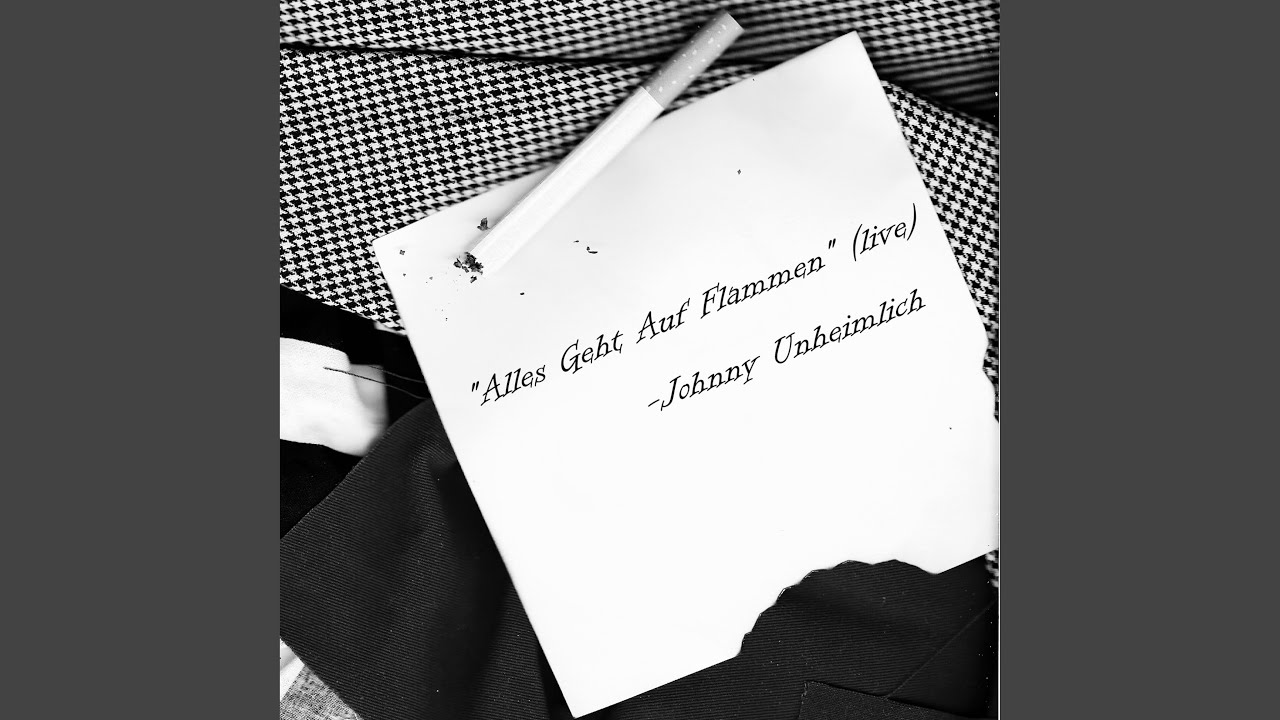 "Alles Geht Auf Flammen" (live)
-Johnny Unheimlich